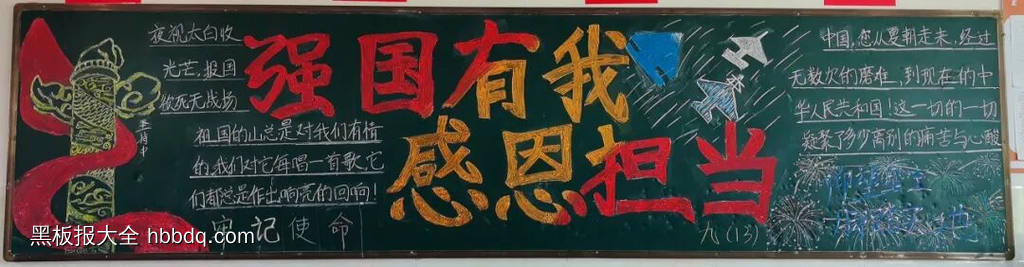 夜视太白收
光芒,报国
欲死无战场
祖国的山总是对我们有情
的我们对它每唱一首歌,它
们都总是作出响亮的回响!
牢记使命
强国有我
感恩担当
九(13)
中国,您从夏朝走来,经过
无数次的磨难,到现在的中
华人民共和国!这一切的一切
凝聚了多少离别的痛苦与心酸
黑板报大全 hbbdq.com